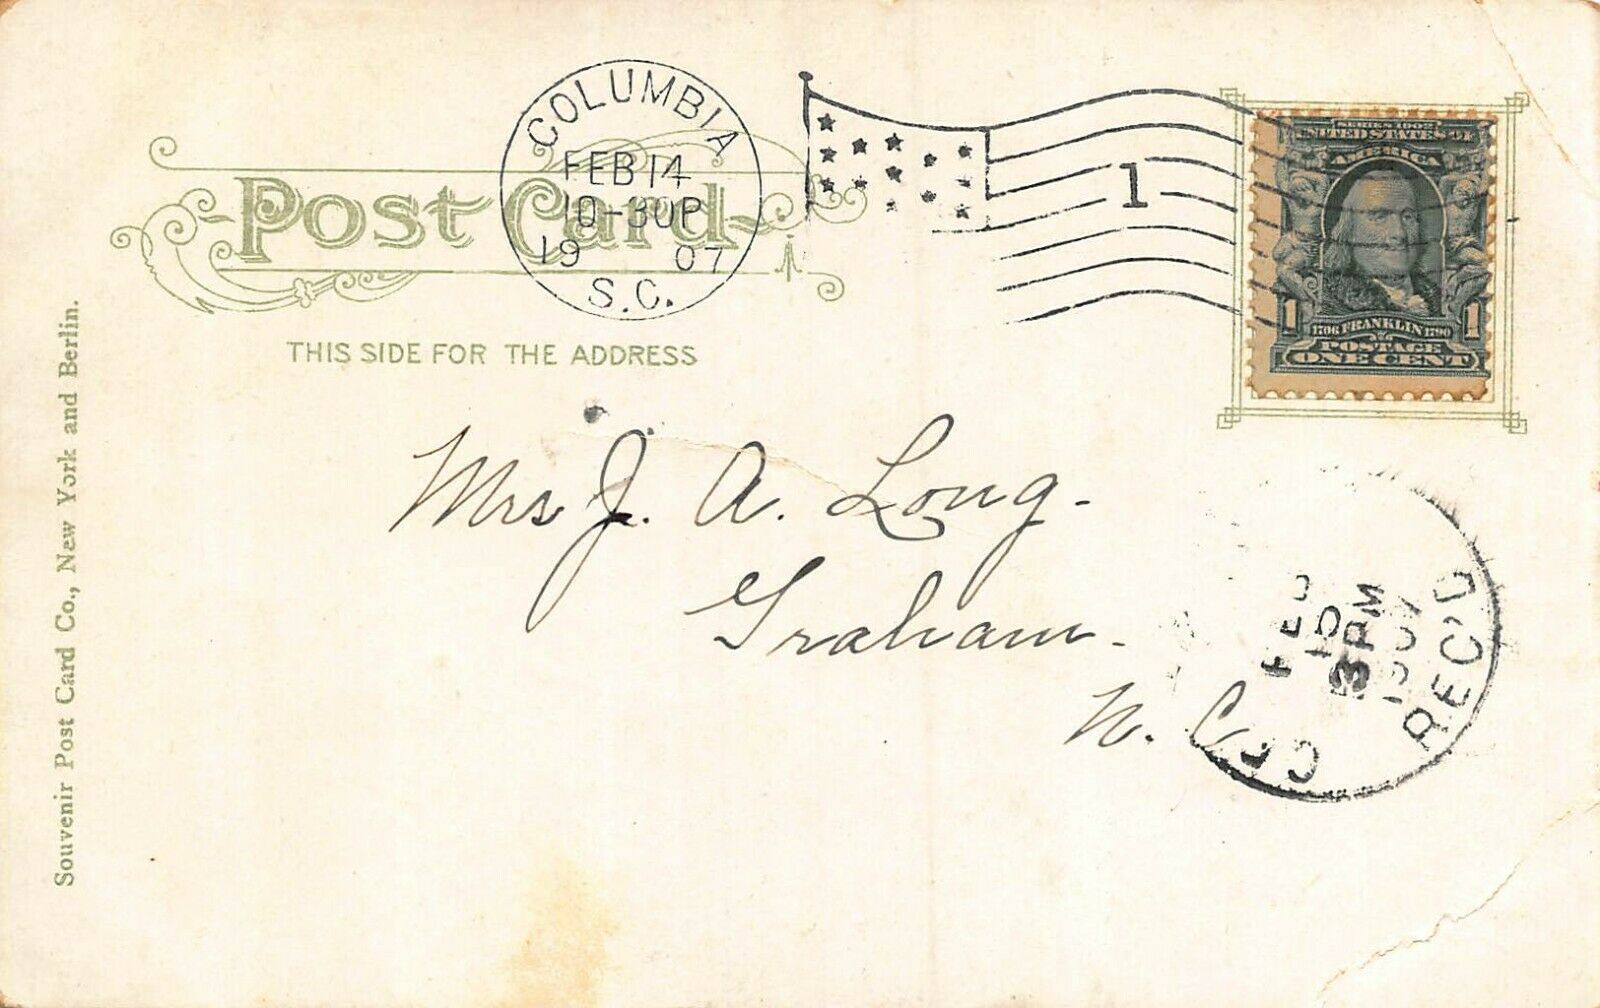 COLUMBIA
FEB 14
10-30P
19 07
S.C.
1
Post Card
THIS SIDE FOR THE ADDRESS
SERIES 1902
UNITED STATES OF
AMERICA
1 1706 FRANKLIN 1790 1
POSTAGE
ONE CENT
Mrs J. A. Long.
Graham.
N. C.
FEB
15
3PM
1907
REC'D
Souvenir Post Card Co., New York and Berlin.